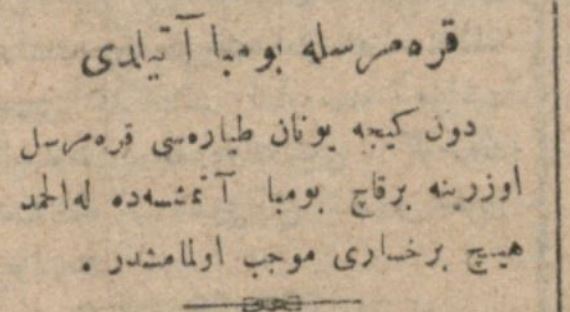 قره‌مرسله بومبا آتیلدی
دون کیجه یونان طیاره‌سی قره‌مرسل
اوزرینه برقاچ بومبا آتمشسه‌ده له‌الحمد
هیچ برخساری موجب اولمامشدر .